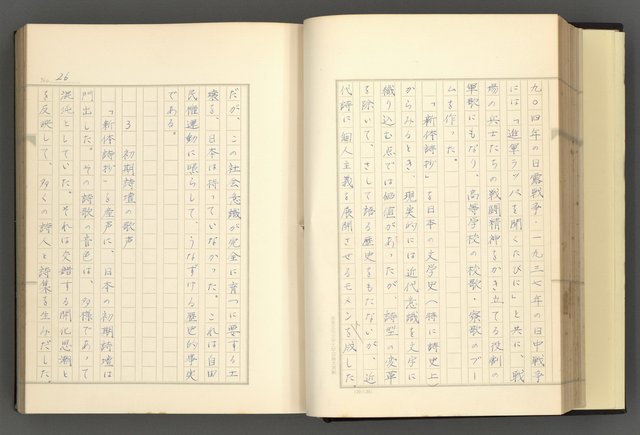 九〇四年の日露戦争・一九三七年の日中戦争
には「進軍ラッパを聞くたびに」と共に、戦
場の兵士たちの戦闘精神をかき立てる役割の
軍歌にもなり、高等学校の校歌・寮歌のブー
ムを作った。
「新体詩抄」を日本の文学史へ特に詩史上）
からみるとき、現実的には近代意識を文学に
織り込む点では価値があったが、詩型の変革
を除いて、さして語る歴史をもたないが、近
代詩に個人主義を展開させるモメンを成した。
No. 26
だが、この社会意識が完全に育つに要する土
壌を、日本は持っていなかった。これは自由
民権運動に照らして、うなずける歴史的事実
である。
3 初期詩壇の歌声
「新体詩抄」を産声に、日本の初期詩壇は
門出した。その詩歌の音色は、多様であって
混沌としていた。それは交錯する開化思潮と
を反映して、多くの詩人と詩集を生みだした。